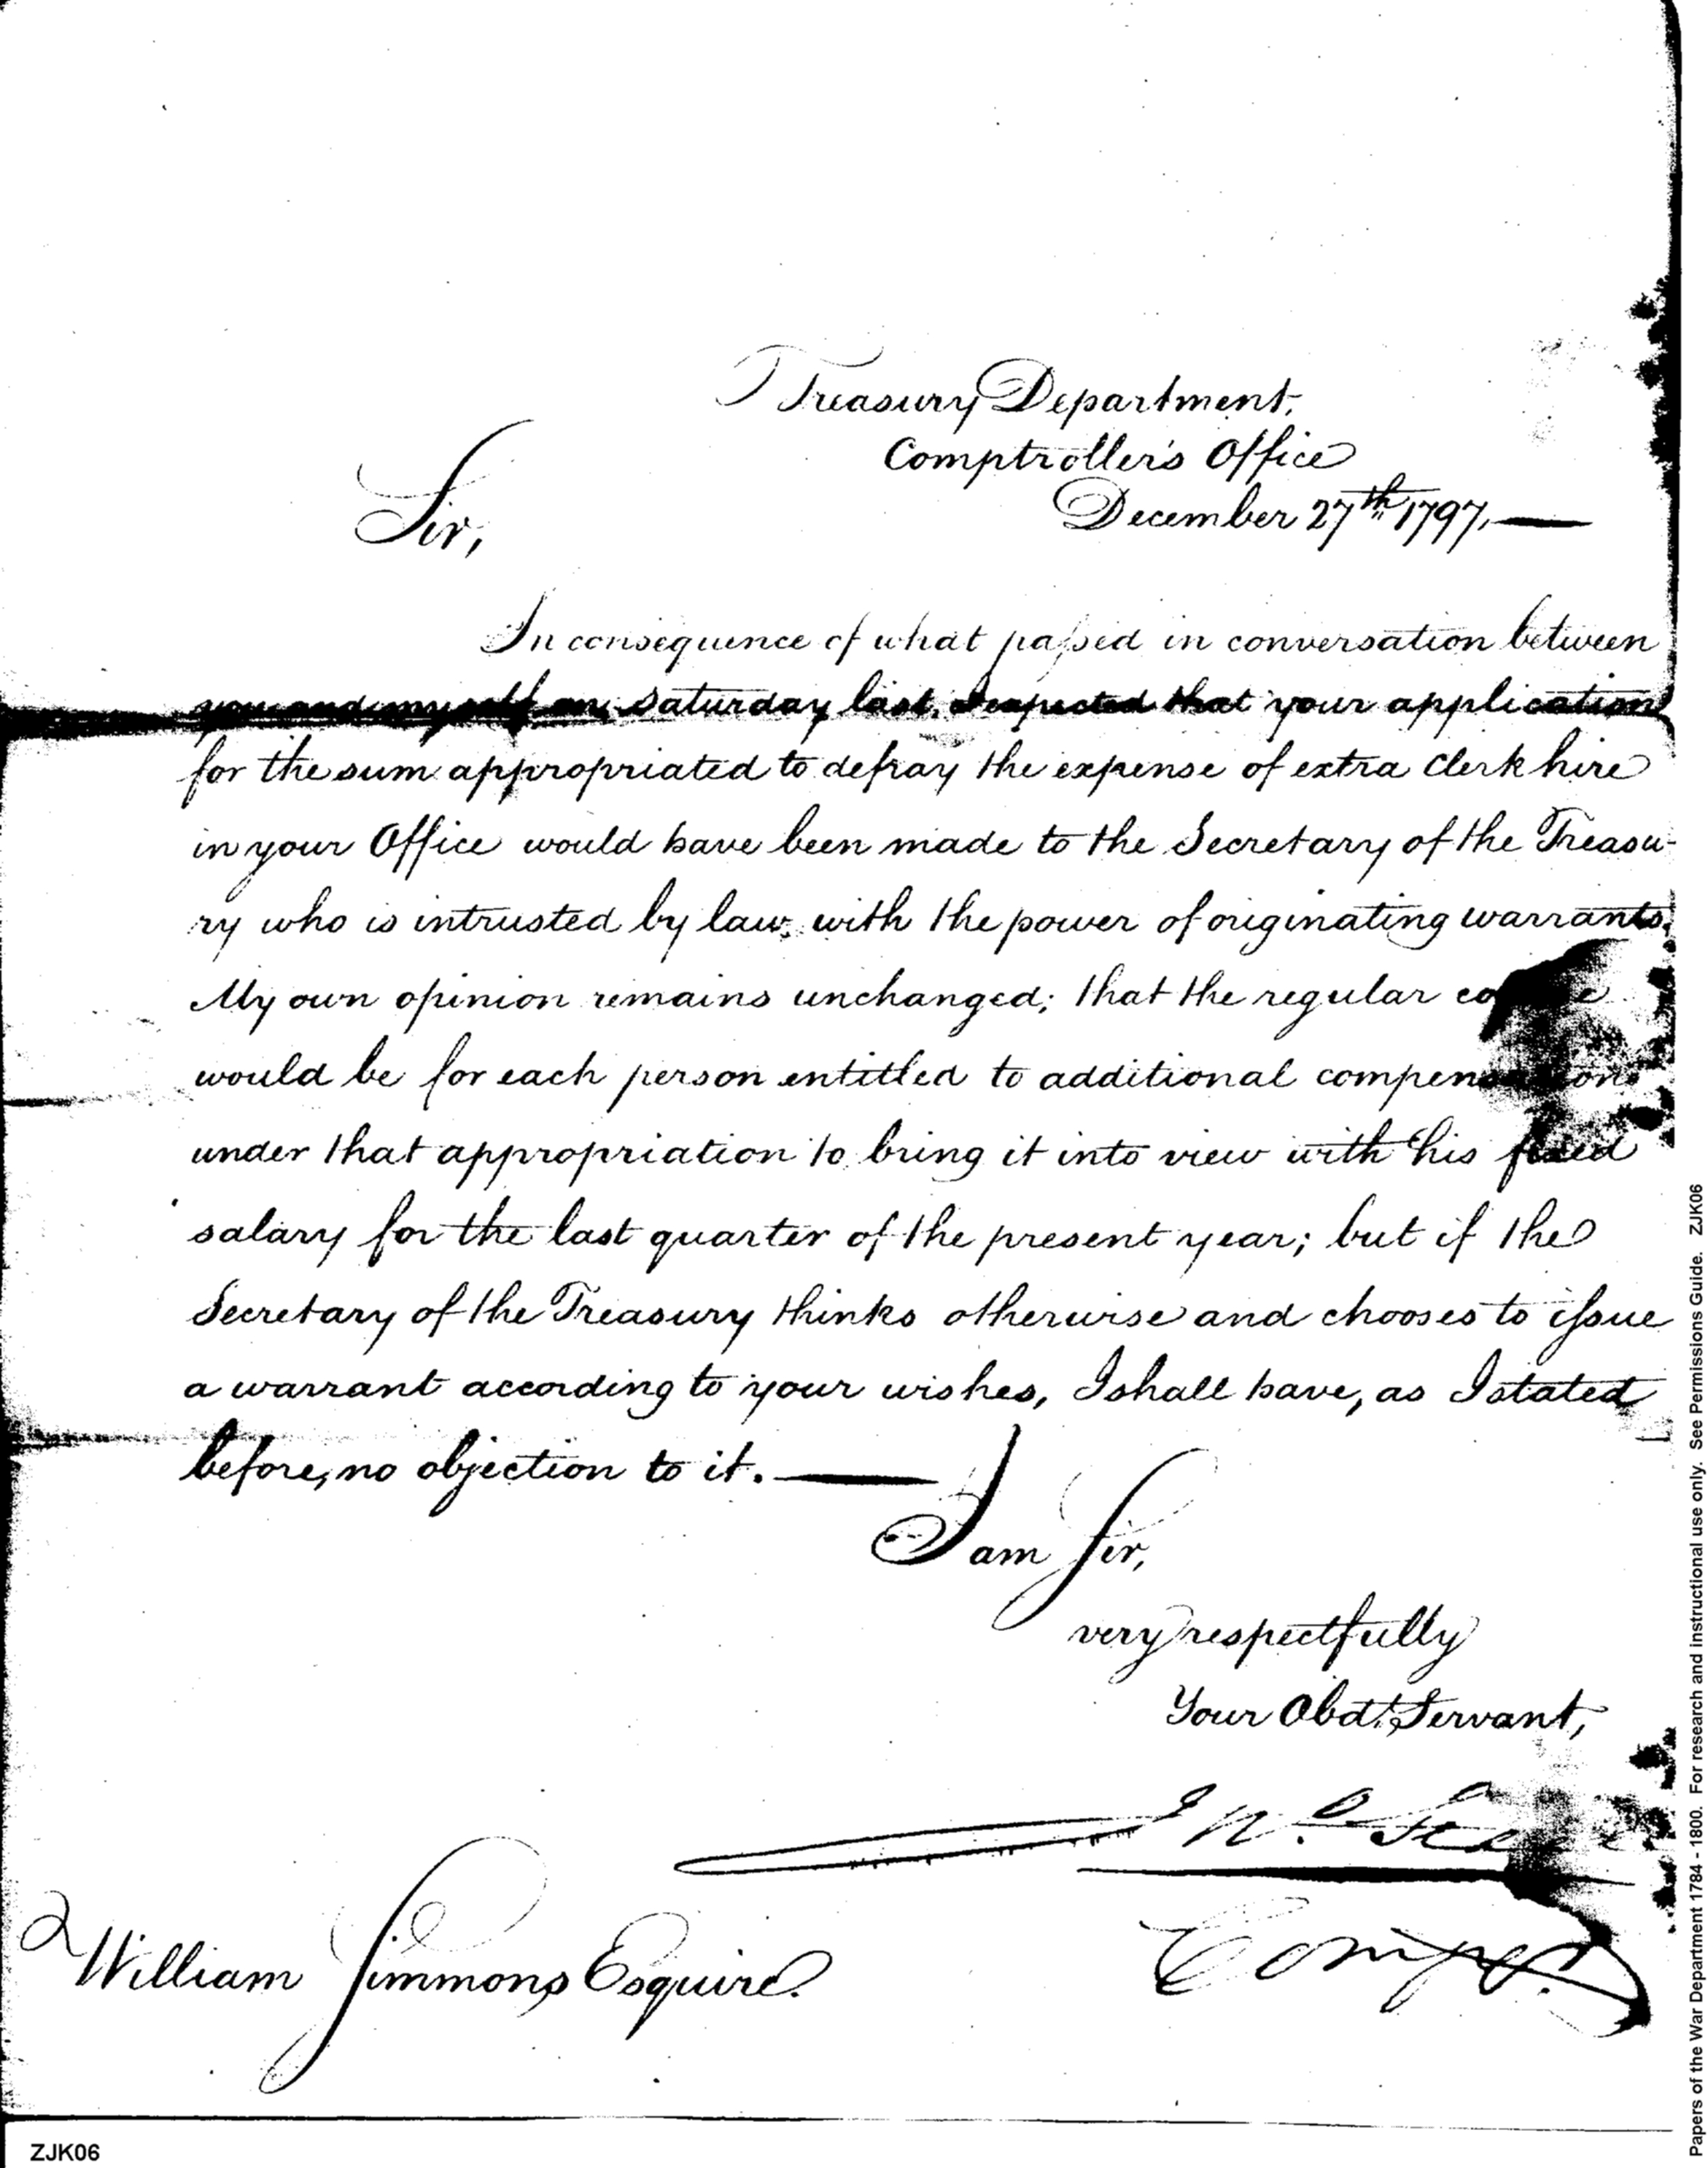 Treasury Department,
Comptroller's Office
December 27th 1797.
Sir,
In consequence of what passed in conversation between
you and myself on Saturday last, I expected that your application
for the sum appropriated to defray the expense of extra Clerk hire
in your Office would have been made to the Secretary of the Treasu-
ry who is intrusted by law, with the power of originating warrants.
My own opinion remains unchanged; that the regular course
would be for each person entitled to additional compensation
under that appropriation to bring it into view with his fixed
salary for the last quarter of the present year; but if the
Secretary of the Treasury thinks otherwise and chooses to issue
a warrant according to your wishes, I shall have, as I stated
before, no objection to it.
I am Sir,
very respectfully
Your Obdt. Servant,
Jno. Steele
Compr.
William Simmons Esquire.
ZJK06
Papers of the War Department 1784 - 1800. For research and instructional use only. See Permissions Guide. ZJK06